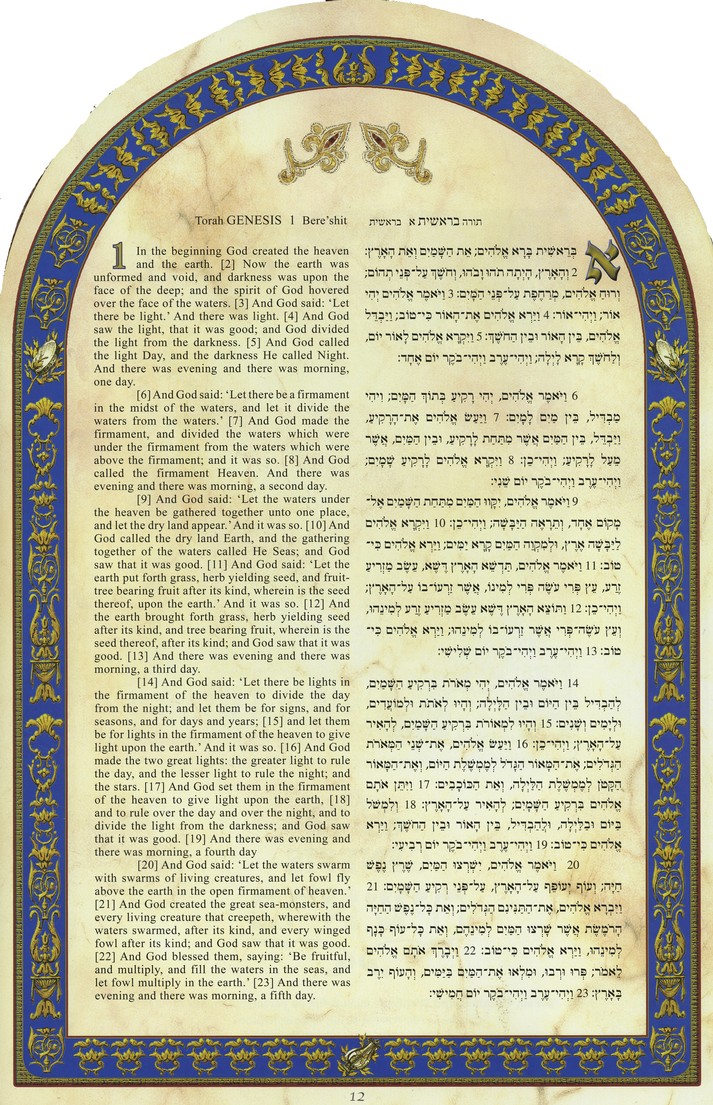 Torah GENESIS 1 Bere’shit
תורה בראשית א בראשית
1 In the beginning God created the heaven
and the earth. [2] Now the earth was
unformed and void, and darkness was upon the
face of the deep; and the spirit of God hovered
over the face of the waters. [3] And God said: ‘Let
there be light.’ And there was light. [4] And God
saw the light, that it was good; and God divided
the light from the darkness. [5] And God called
the light Day, and the darkness He called Night.
And there was evening and there was morning,
one day.
[6] And God said: ‘Let there be a firmament
in the midst of the waters, and let it divide the
waters from the waters.’ [7] And God made the
firmament, and divided the waters which were
under the firmament from the waters which were
above the firmament; and it was so. [8] And God
called the firmament Heaven. And there was
evening and there was morning, a second day.
[9] And God said: ‘Let the waters under
the heaven be gathered together unto one place,
and let the dry land appear.’ And it was so. [10] And
God called the dry land Earth, and the gathering
together of the waters called He Seas; and God
saw that it was good. [11] And God said: ‘Let the
earth put forth grass, herb yielding seed, and fruit-
tree bearing fruit after its kind, wherein is the seed
thereof, upon the earth.’ And it was so. [12] And
the earth brought forth grass, herb yielding seed
after its kind, and tree bearing fruit, wherein is the
seed thereof, after its kind; and God saw that it was
good. [13] And there was evening and there was
morning, a third day.
[14] And God said: ‘Let there be lights in
the firmament of the heaven to divide the day
from the night; and let them be for signs, and for
seasons, and for days and years; [15] and let them
be for lights in the firmament of the heaven to give
light upon the earth.’ And it was so. [16] And God
made the two great lights: the greater light to rule
the day, and the lesser light to rule the night; and
the stars. [17] And God set them in the firmament
of the heaven to give light upon the earth, [18]
and to rule over the day and over the night, and to
divide the light from the darkness; and God saw
that it was good. [19] And there was evening and
there was morning, a fourth day
[20] And God said: ‘Let the waters swarm
with swarms of living creatures, and let fowl fly
above the earth in the open firmament of heaven.’
[21] And God created the great sea-monsters, and
every living creature that creepeth, wherewith the
waters swarmed, after its kind, and every winged
fowl after its kind; and God saw that it was good.
[22] And God blessed them, saying: ‘Be fruitful,
and multiply, and fill the waters in the seas, and
let fowl multiply in the earth.’ [23] And there was
evening and there was morning, a fifth day.
א בְּרֵאשִׁית בָּרָא אֱלֹהִים; אֵת הַשָּׁמַיִם וְאֵת הָאָרֶץ:
2 וְהָאָרֶץ, הָיְתָה תֹהוּ וָבֹהוּ, וְחֹשֶׁךְ עַל־פְּנֵי תְהוֹם;
וְרוּחַ אֱלֹהִים, מְרַחֶפֶת עַל־פְּנֵי הַמָּיִם: 3 וַיֹּאמֶר אֱלֹהִים יְהִי
אוֹר; וַיְהִי־אוֹר: 4 וַיַּרְא אֱלֹהִים אֶת־הָאוֹר כִּי־טוֹב; וַיַּבְדֵּל
אֱלֹהִים, בֵּין הָאוֹר וּבֵין הַחֹשֶׁךְ: 5 וַיִּקְרָא אֱלֹהִים לָאוֹר יוֹם,
וְלַחֹשֶׁךְ קָרָא לָיְלָה; וַיְהִי־עֶרֶב וַיְהִי־בֹקֶר יוֹם אֶחָד:
6 וַיֹּאמֶר אֱלֹהִים, יְהִי רָקִיעַ בְּתוֹךְ הַמָּיִם; וִיהִי
מַבְדִּיל, בֵּין מַיִם לָמָיִם: 7 וַיַּעַשׂ אֱלֹהִים אֶת־הָרָקִיעַ,
וַיַּבְדֵּל, בֵּין הַמַּיִם אֲשֶׁר מִתַּחַת לָרָקִיעַ, וּבֵין הַמַּיִם, אֲשֶׁר
מֵעַל לָרָקִיעַ; וַיְהִי־כֵן: 8 וַיִּקְרָא אֱלֹהִים לָרָקִיעַ שָׁמָיִם;
וַיְהִי־עֶרֶב וַיְהִי־בֹקֶר יוֹם שֵׁנִי:
9 וַיֹּאמֶר אֱלֹהִים, יִקָּווּ הַמַּיִם מִתַּחַת הַשָּׁמַיִם אֶל־
מָקוֹם אֶחָד, וְתֵרָאֶה הַיַּבָּשָׁה; וַיְהִי־כֵן: 10 וַיִּקְרָא אֱלֹהִים
לַיַּבָּשָׁה אֶרֶץ, וּלְמִקְוֵה הַמַּיִם קָרָא יַמִּים; וַיַּרְא אֱלֹהִים כִּי־
טוֹב: 11 וַיֹּאמֶר אֱלֹהִים, תַּדְשֵׁא הָאָרֶץ דֶּשֶׁא, עֵשֶׂב מַזְרִיעַ
זֶרַע, עֵץ פְּרִי עֹשֶׂה פְּרִי לְמִינוֹ, אֲשֶׁר זַרְעוֹ־בוֹ עַל־הָאָרֶץ;
וַיְהִי־כֵן: 12 וַתּוֹצֵא הָאָרֶץ דֶּשֶׁא עֵשֶׂב מַזְרִיעַ זֶרַע לְמִינֵהוּ,
וְעֵץ עֹשֶׂה־פְּרִי אֲשֶׁר זַרְעוֹ־בוֹ לְמִינֵהוּ; וַיַּרְא אֱלֹהִים כִּי־
טוֹב: 13 וַיְהִי־עֶרֶב וַיְהִי־בֹקֶר יוֹם שְׁלִישִׁי:
14 וַיֹּאמֶר אֱלֹהִים, יְהִי מְאֹרֹת בִּרְקִיעַ הַשָּׁמַיִם,
לְהַבְדִּיל בֵּין הַיּוֹם וּבֵין הַלָּיְלָה; וְהָיוּ לְאֹתֹת וּלְמוֹעֲדִים,
וּלְיָמִים וְשָׁנִים: 15 וְהָיוּ לִמְאוֹרֹת בִּרְקִיעַ הַשָּׁמַיִם, לְהָאִיר
עַל־הָאָרֶץ; וַיְהִי־כֵן: 16 וַיַּעַשׂ אֱלֹהִים, אֶת־שְׁנֵי הַמְּאֹרֹת
הַגְּדֹלִים; אֶת־הַמָּאוֹר הַגָּדֹל לְמֶמְשֶׁלֶת הַיּוֹם, וְאֶת־הַמָּאוֹר
הַקָּטֹן לְמֶמְשֶׁלֶת הַלַּיְלָה, וְאֵת הַכּוֹכָבִים: 17 וַיִּתֵּן אֹתָם
אֱלֹהִים בִּרְקִיעַ הַשָּׁמָיִם; לְהָאִיר עַל־הָאָרֶץ: 18 וְלִמְשֹׁל
בַּיּוֹם וּבַלַּיְלָה, וּלְהַבְדִּיל, בֵּין הָאוֹר וּבֵין הַחֹשֶׁךְ; וַיַּרְא
אֱלֹהִים כִּי־טוֹב: 19 וַיְהִי־עֶרֶב וַיְהִי־בֹקֶר יוֹם רְבִיעִי:
20 וַיֹּאמֶר אֱלֹהִים, יִשְׁרְצוּ הַמַּיִם, שֶׁרֶץ נֶפֶשׁ
חַיָּה; וְעוֹף יְעוֹפֵף עַל־הָאָרֶץ, עַל־פְּנֵי רְקִיעַ הַשָּׁמָיִם: 21
וַיִּבְרָא אֱלֹהִים, אֶת־הַתַּנִּינִם הַגְּדֹלִים; וְאֵת כָּל־נֶפֶשׁ הַחַיָּה
הָרֹמֶשֶׂת אֲשֶׁר שָׁרְצוּ הַמַּיִם לְמִינֵהֶם, וְאֵת כָּל־עוֹף כָּנָף
לְמִינֵהוּ, וַיַּרְא אֱלֹהִים כִּי־טוֹב: 22 וַיְבָרֶךְ אֹתָם אֱלֹהִים
לֵאמֹר; פְּרוּ וּרְבוּ, וּמִלְאוּ אֶת־הַמַּיִם בַּיַּמִּים, וְהָעוֹף יִרֶב
בָּאָרֶץ: 23 וַיְהִי־עֶרֶב וַיְהִי־בֹקֶר יוֹם חֲמִישִׁי:
12